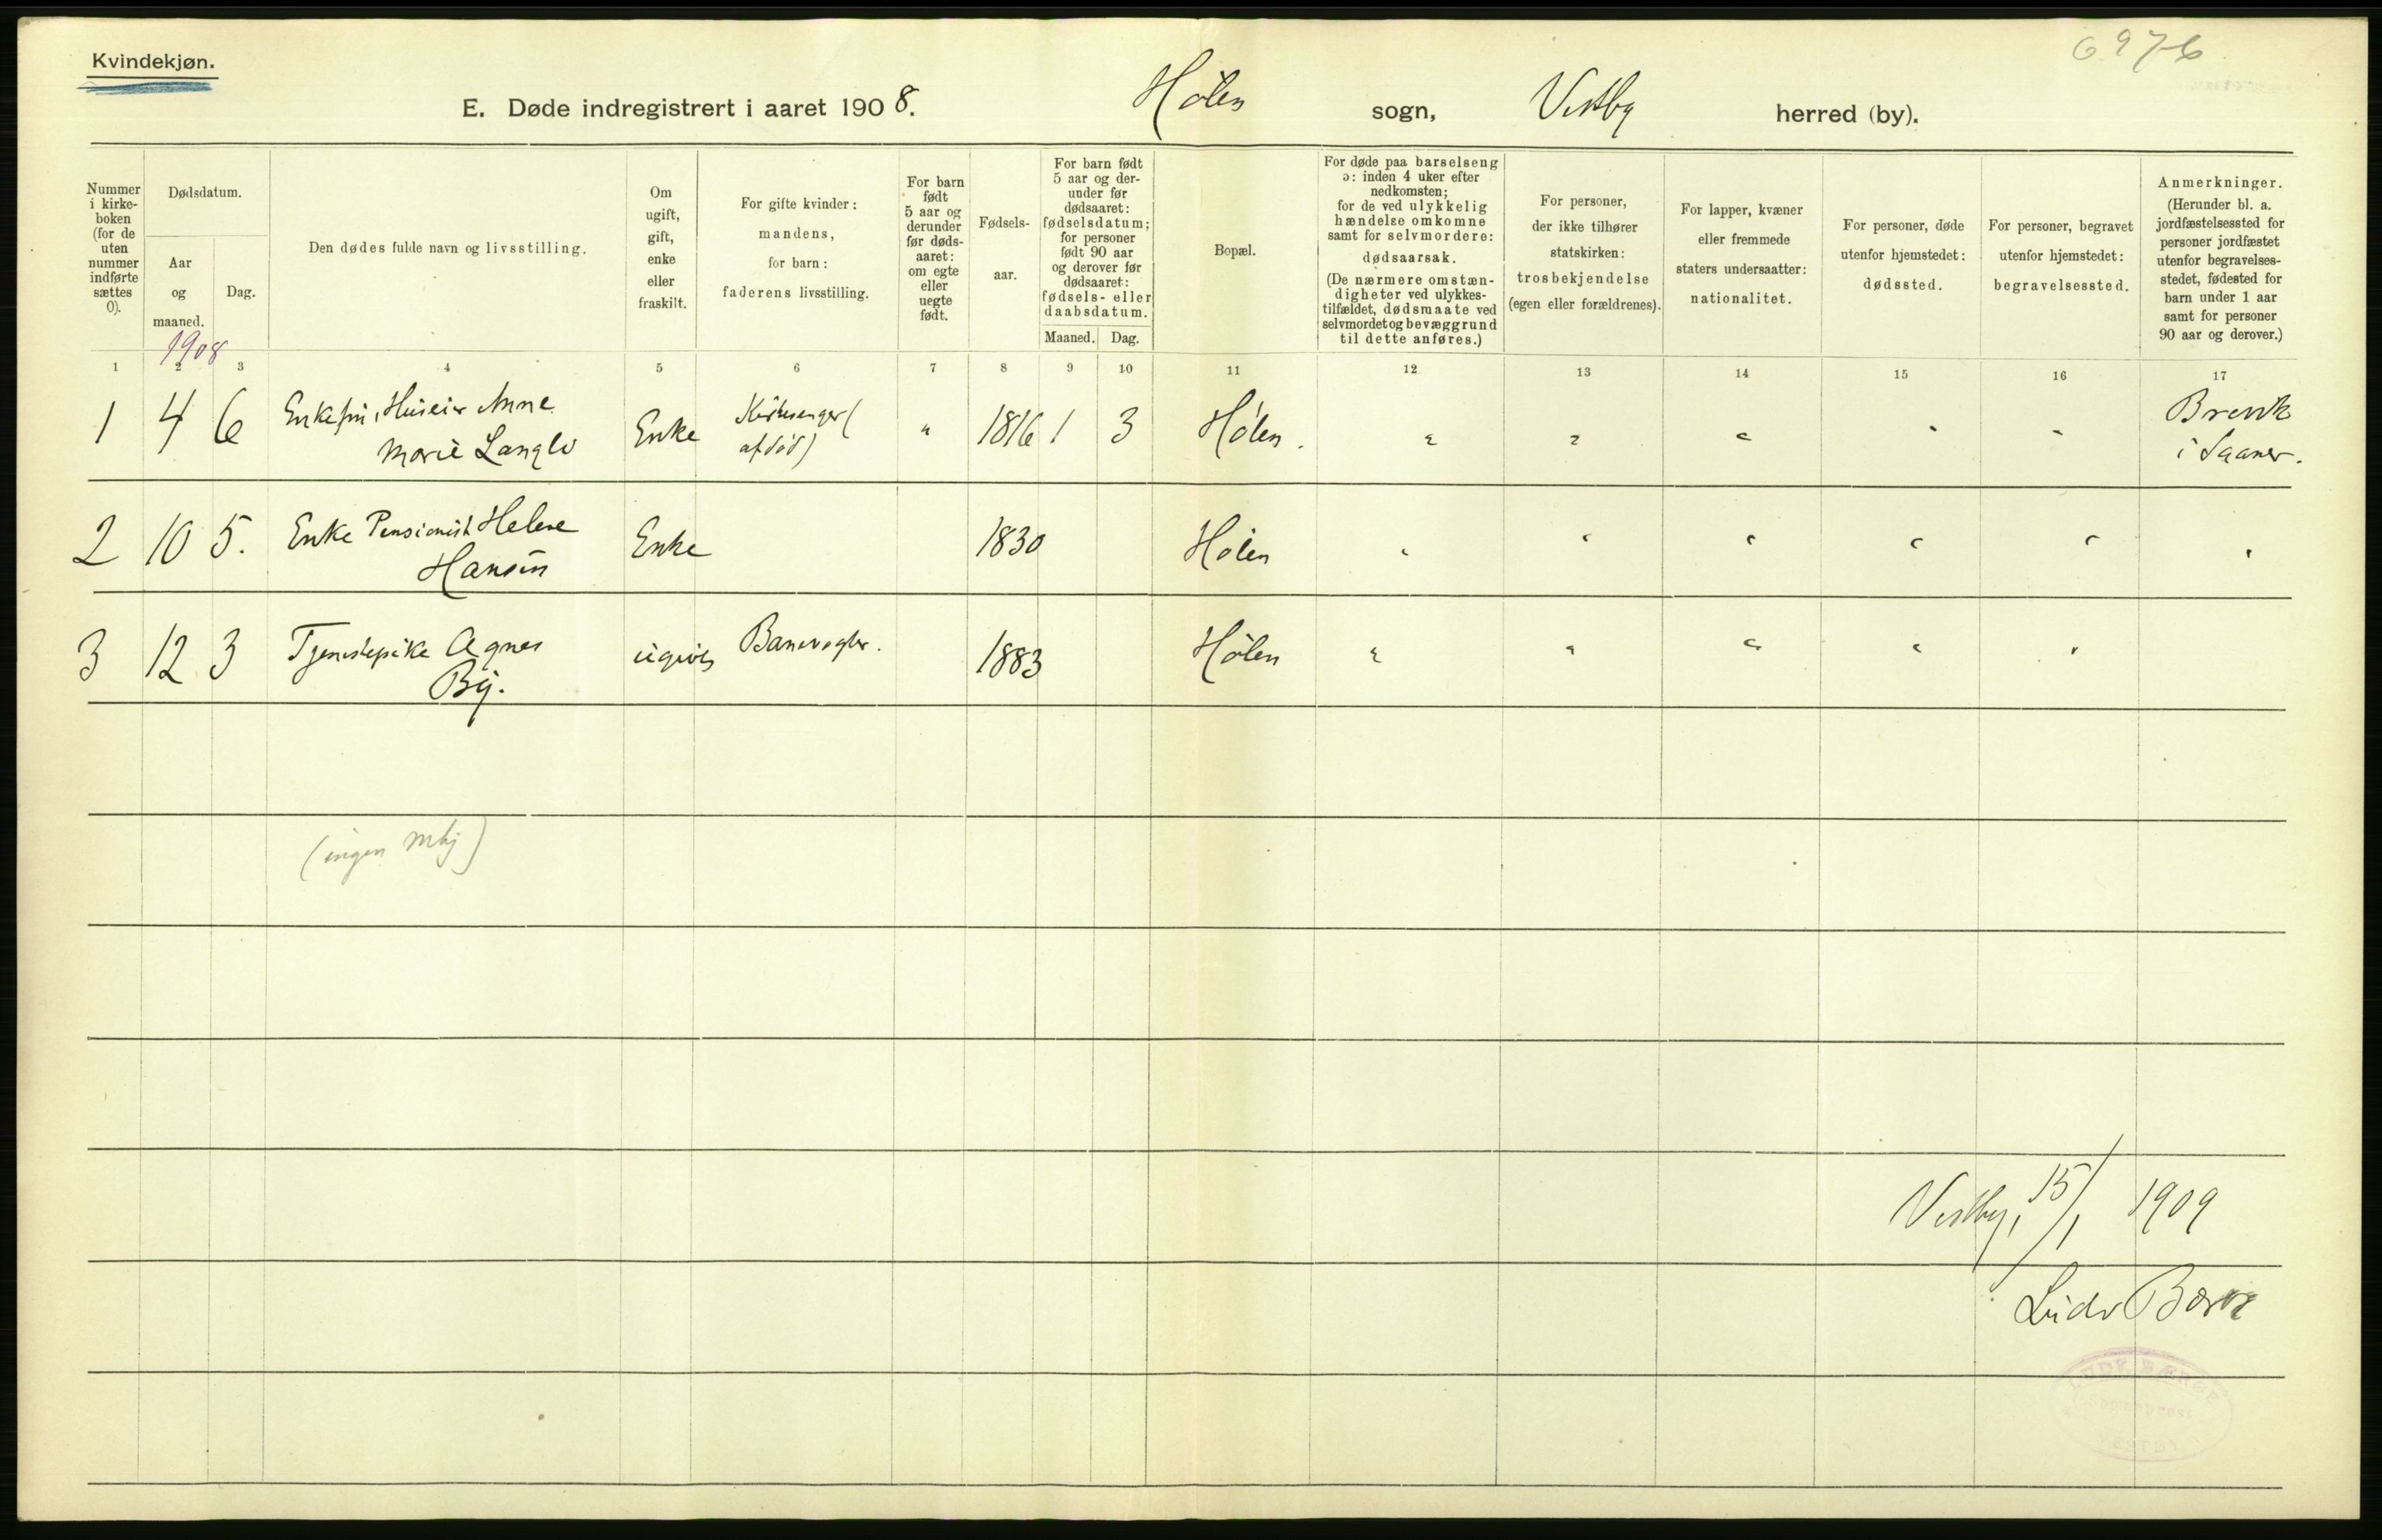 Kvindekjøn.
6976
E. Døde indregistrert i aaret 1908. Hølen sogn, Vestby herred (by).
Nummer
i kirke-
boken
(for de
uten
nummer
indførte
sættes
0).
Dødsdatum.
Aar
og
maaned.
Dag.
Den dødes fulde navn og livsstilling.
Om
ugift,
gift,
enke
eller
fraskilt.
For gifte kvinder:
mandens,
for barn:
faderens livsstilling.
For barn
født
5 aar og
derunder
før døds-
aaret:
om egte
eller
uegte
født.
Fødsels-
aar.
For barn født
5 aar og der-
under før
dødsaaret:
fødselsdatum;
for personer
født 90 aar
og derover før
dødsaaret:
fødsels- eller
daabsdatum.
Maaned. Dag.
Bopæl.
For døde paa barselseng
ɔ: inden 4 uker efter
nedkomsten;
for de ved ulykkelig
hændelse omkomne
samt for selvmordere:
dødsaarsak.
(De nærmere omstæn-
digheter ved ulykkes-
tilfældet, dødsmaate ved
selvmordet og bevæggrund
til dette anføres.)
For personer,
der ikke tilhører
statskirken:
trosbekjendelse
(egen eller forældrenes).
For lapper, kvæner
eller fremmede
staters undersaatter:
nationalitet.
For personer, døde
utenfor hjemstedet:
dødssted.
For personer, begravet
utenfor hjemstedet:
begravelsessted.
Anmerkninger.
(Herunder bl. a.
jordfæstelsessted for
personer jordfæstet
utenfor begravelses-
stedet, fødested for
barn under 1 aar
samt for personer
90 aar og derover.)
1908
1 2 3 4 5 6 7 8 9 10 11 12 13 14 15 16 17
1 4 6 Enkefru, Huseier Anne Enke Kirkesanger ( " 1816 1 3 Hølen. " " " " " Brevik
Marie Langlo afdød) i Saaner.
2 10 5. Enke Pensionist Helene Enke 1830 Hølen " " " " " "
Hansen
3 12 3 Tjenestepike Agnes ugivt Banevogter. 1883 Hølen " " " " "
By.
(ingen mkj)
Vestby, 15/1 1909
Ludv Bærøe
LUDV. BÆRØE
Sogneprest
VESTBY